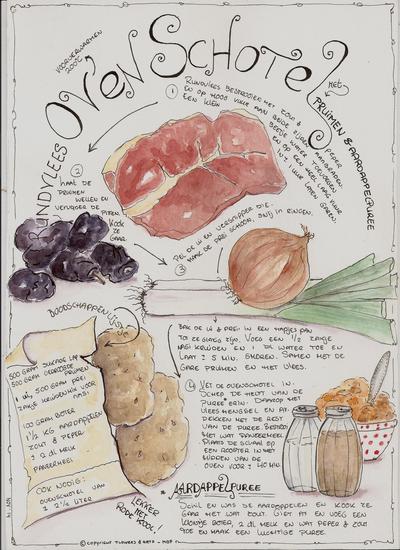 VOORVERWARMEN
200°C
OVENSCHOTEL
MET
PRUIMEN & AARDAPPELPUREE
RUNDVLEES
1
RUNDVLEES BESTROOIEN MET ZOUT &
PEPER
EN OP HOOG VUUR AAN BEIDE ZIJDEN
AANBRADEN.
EEN KLEIN
BEETJE WATER
TOEVOEGEN
EN OP EEN HEEL LAAG VUUR
UUR LATEN GAREN.
2
HAAL DE
PRUIMEN
WELLEN EN
VERWIJDER DE
PITTEN.
KOOK
ZE
GAAR
3
PEL DE UI EN VERSNIPPER DIE.
MAAK DE PREI SCHOON, SNIJ IN RINGEN.
BAK DE UI & PREI IN EEN HAPJESPAN
TOT ZE GLAZIG ZIJN. VOEG EEN 1/2 ZAKJE
NASI KRUIDEN EN 1 DL WATER TOE EN
LAAT ± 5 MIN. SUDDEREN. SAMEN MET DE
GARE PRUIMEN EN HET VLEES.
BOODSCHAPPENLIJST
500 GRAM SUKADE LAP
500 GRAM GEDROOGDE
PRUIMEN
1 UI, 500 GRAM PREI
ZAKJE KRUIDENMIX VOOR
NASI
100 GRAM BOTER
1 1/2 KG AARDAPPELEN
ZOUT & PEPER
± 2 DL MELK
PANEERMEEL
OOK NODIG:
OVENSCHOTEL VAN
± 2 1/2 LITER
4
VET DE OVENSCHOTEL IN.
SCHEP DE HELFT VAN DE
PUREE ERIN. DAAROP HET
VLEESMENGSEL EN AF-
DEKKEN MET DE REST
VAN DE PUREE. BESTROOI
MET WAT PANEERMEEL.
PLAATS DE SCHAAL OP
EEN ROOSTER IN HET
MIDDEN VAN DE
OVEN VOOR ± 40 MIN.
LEKKER
MET
RODE KOOL!
* AARDAPPELPUREE
SCHIL EN WAS DE AARDAPPELEN EN KOOK ZE
GAAR MET WAT ZOUT. GIET AF EN VOEG EEN
KLONTJE BOTER, 2 DL MELK EN WAT PEPER & ZOUT
TOE EN MAAK EEN LUCHTIGE PUREE.
© COPYRIGHT